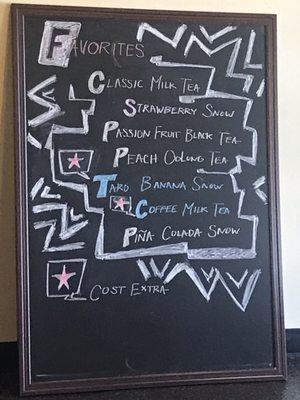 FAVORITES
CLASSIC MILK TEA
STRAWBERRY SNOW
PASSION FRUIT BLACK TEA
PEACH OOLONG TEA
TARO BANANA SNOW
COFFEE MILK TEA
PIÑA COLADA SNOW
COST EXTRA